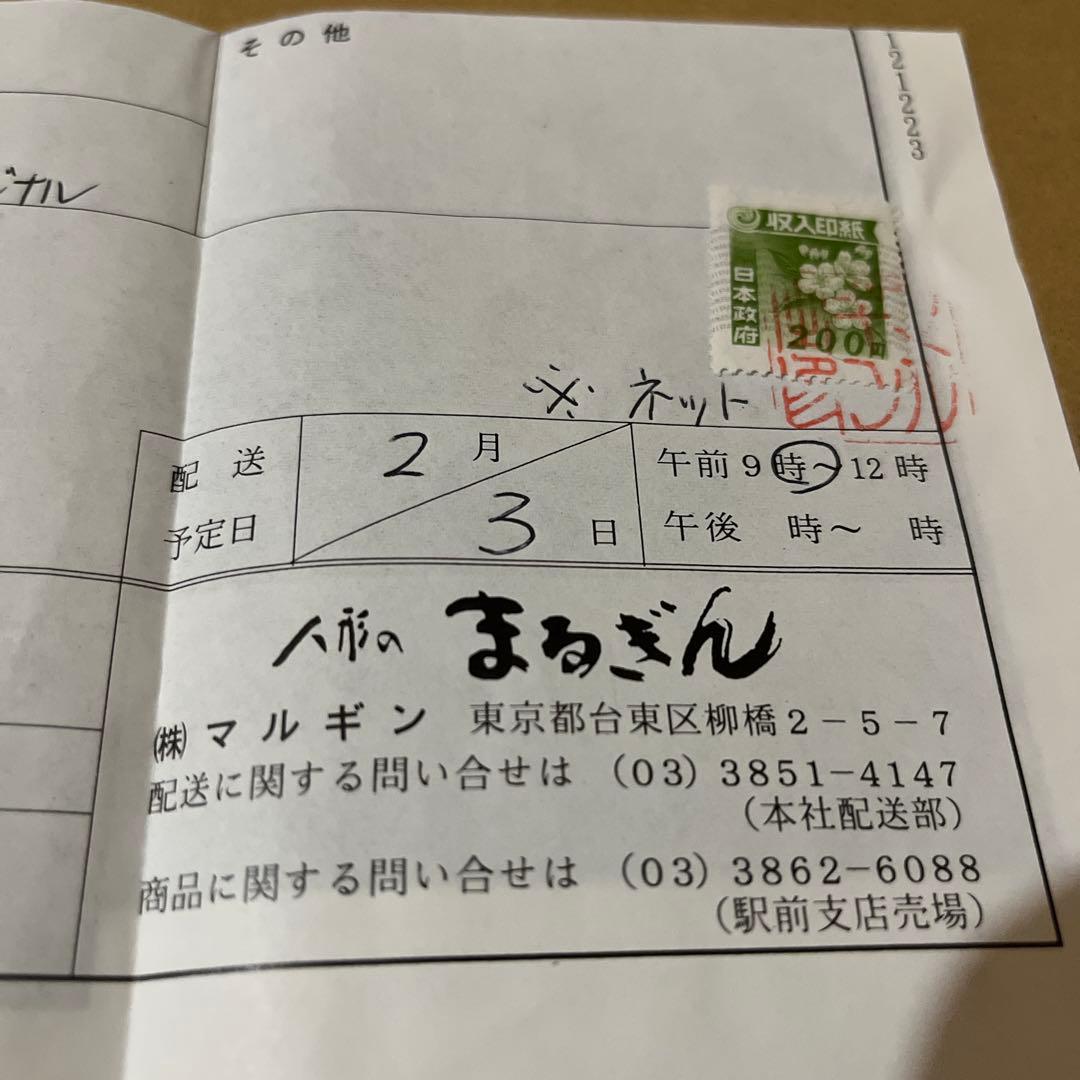 その他
121223
ジナル
収入印紙
日本政府
200円
※ ネット
配送 2月 午前9時～12時
予定日 3日 午後 時～ 時
人形の まるぎん
㈱マルギン 東京都台東区柳橋2-5-7
配送に関する問い合せは (03) 3851-4147
(本社配送部)
商品に関する問い合せは (03) 3862-6088
(駅前支店売場)